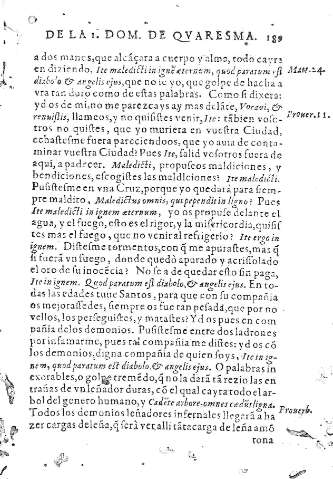 DE LA 1. DOM. DE QVARESMA. 189
a dos manes, que alcāçara a cuerpo y almo, todo cayra
en diziendo, Ite maledicti in ignē æternum, quod paratum est Mat. 24.
diabolo & angelis eius, que no le vo, que golpe de hacha a
vra tan duro como de estas palabras. Como si dixera:
yd os de mi, no me parezcays ay mas delāte, Vocaui, &
renuistis, llameos, y no quisistes venir, Ite: tābien vos- Prouer. 11.
tros no quistes, que yo muriera en vuestra Ciudad,
echastesme fuera pareciendoos, que yo auia de conta-
minar vuestra Ciudad? Pues Ite, salid vosotros fuera de
aqui, a padecer. Maledicti, propuseos maldiciones, y
bendiciones, escogistes las maldiciones? Ite maledicti.
Pusistesme en vna Cruz, porque yo quedará para siem-
pre maldito, Maledictus omnis, qui pependit in ligno? Pues
Ite maledicti in ignem æternum, yo os propuse delante el
agua, y el fuego, esto es el rigor, y la misericordia, quisis
tes mas el fuego, que no venir al refrigerio? Ite ergo in
ignem. Distesme tormentos, con q̃ me apurastes, mas q̃
si fuerā vn fuego, donde quedò apurado y acrisolado
el oro de su inocēcia? No se a de quedar esto sin paga,
Ite in ignem. Quod paratum est diabolo, & angelis eius. En to-
das las edades tuue Santos, para que con su compañia
os mejorassedes, siempre os fue tan pesada, que por no
vellos, los perseguistes, y matastes? Yd os pues en com
pañia de los demonios. Pusistesme entre dos ladrones
por infamarme, pues tal compañia me distes: yd os cō
los demonios, digna compañia de quien soys, Ite in ig-
nem, quod paratum est diabolo, & angelis eius. O palabras in
exorables, o golpe tremēdo, q̃ no la dará tā rezio las en
trañas de vn leñador duras, cō el qual cayra todo el ar-
bol del genero humano, y Cadēte arbore omnes cœdūt ligna. Prouerb.
Todos los demonios leñadores infernales llegarā a ha
zer cargas de leña, q̃ será ver alli tāta carga de leña amō
tona